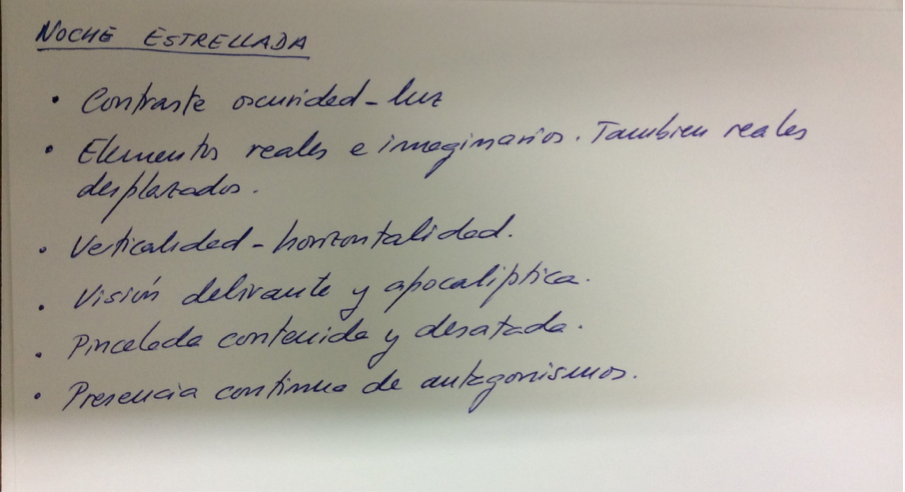 NOCHE ESTRELLADA
• Contraste oscuridad - luz
• Elementos reales e imaginarios. Tambien reales
desplazados.
• Verticalidad - horizontalidad.
• Visión delirante y apocaliptica.
• Pincelada contenida y desatada.
• Presencia continua de antagonismos.